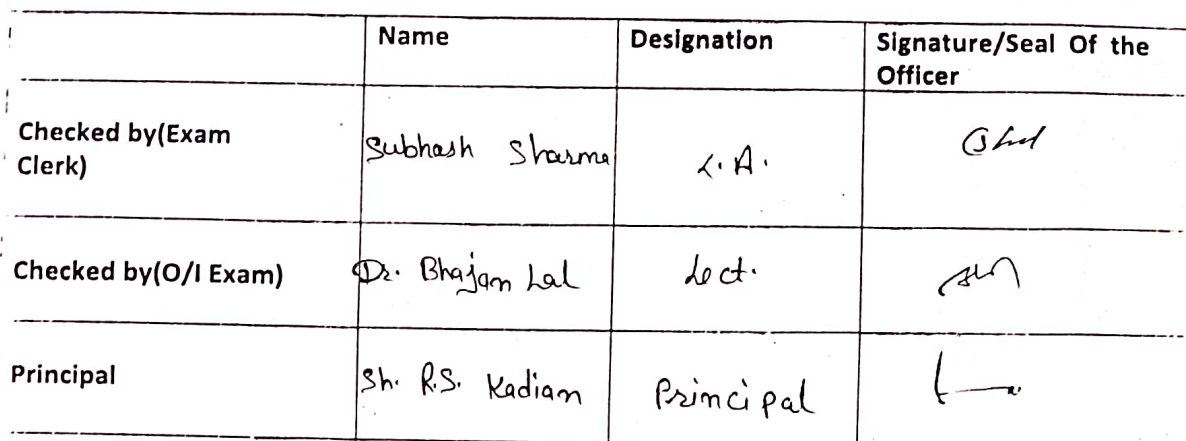 Name Designation Signature/Seal Of the
Officer
Checked by(Exam
Clerk) Subhash Sharma L.A.
Checked by(O/I Exam) Dr. Bhajan Lal Lect.
Principal Sh. R.S. Kadian Principal